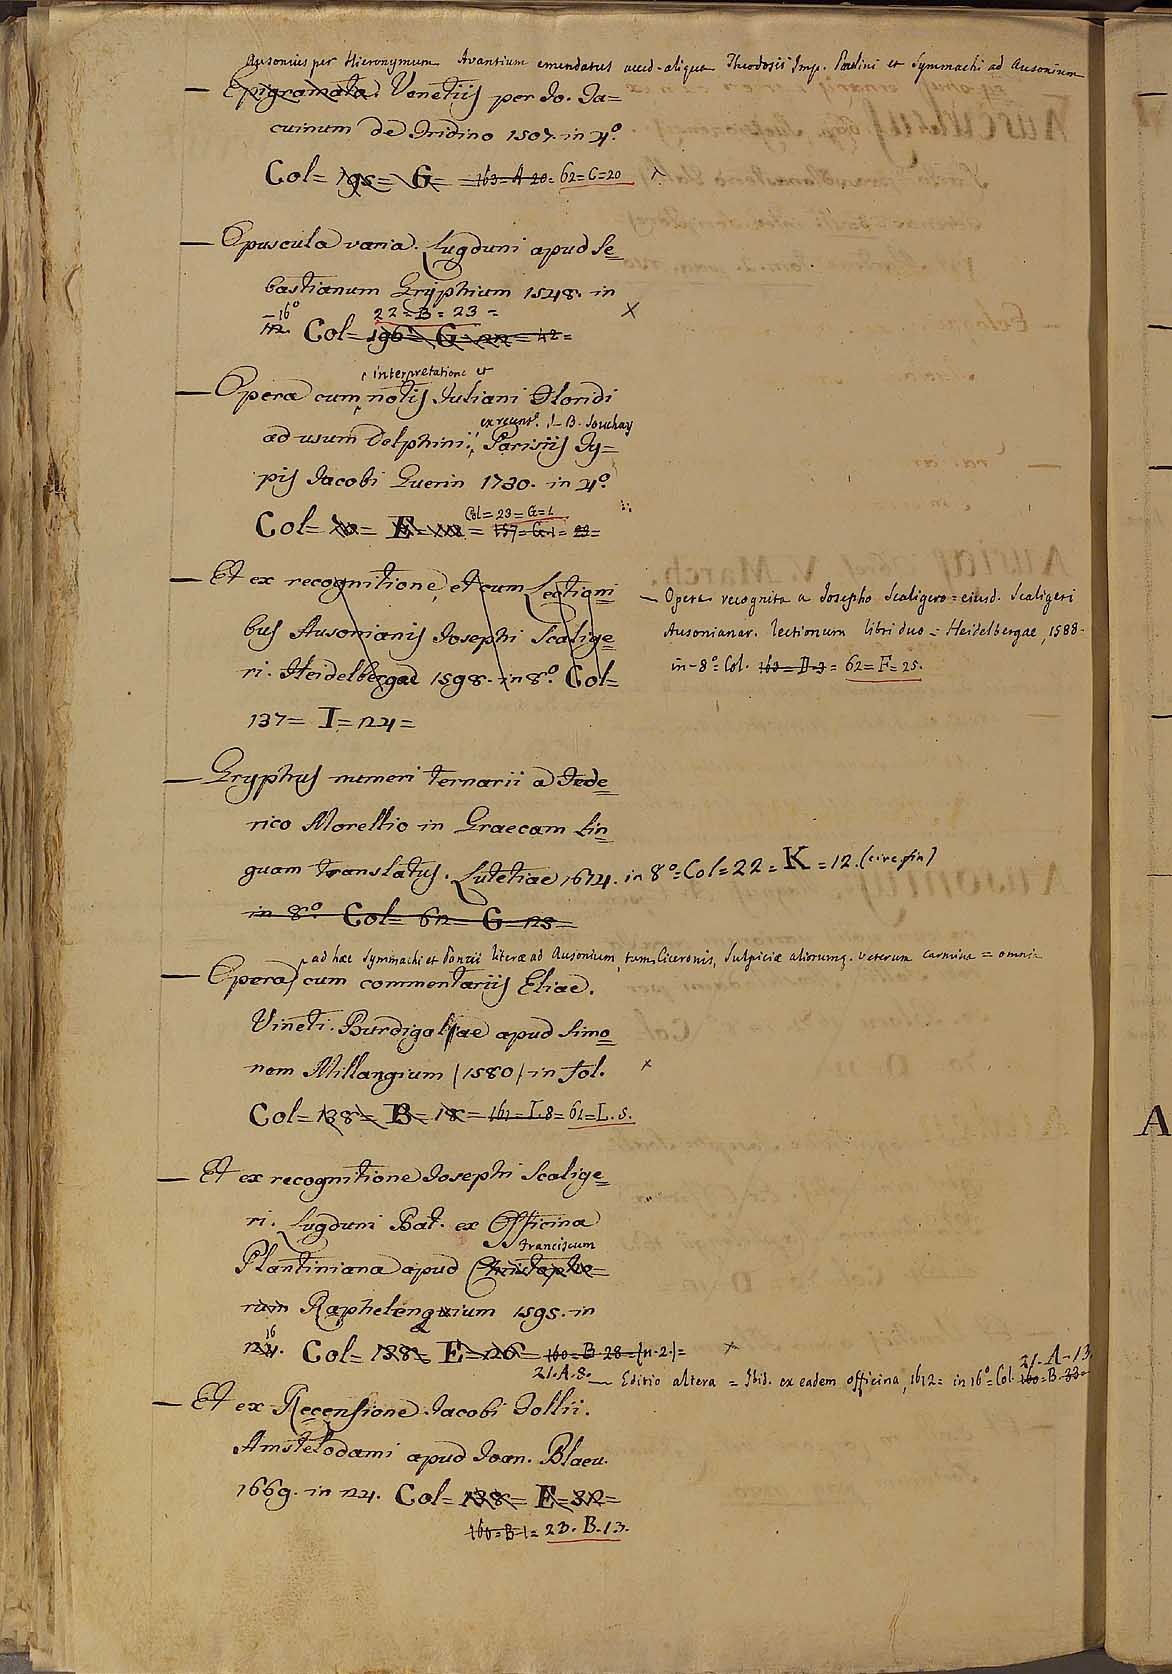 Ausonius per Hieronymum Avantium emendatus accd. aliquae Theodosii Imp. Paulini et Symmachi ad Ausonium
— Epigramata. Venetiis per Jo. Ja=
cuinum de Tridino 1507. in 4.º
Col= 195= G= =163=A 20= 62=C=20
— Opuscula varia. Lugduni apud Se=
bastianum Gryphium 1548. in
16º 22=B=23= X
12. Col= 196= G= 22= 42=
interpretatione et
— Opera cum notis Juliani Floridi
ex recens.e J. B. Souchay
ad usum Delphini. Parisiis Ty=
pis Jacobi Guerin 1730. in 4.º
Col=23=G=1.
Col= E= =157=G.1=
— Et ex recognitione, et cum Lectioni
bus Ausonianis Josephi Scalige=
ri. Heidelbergae 1598. in 8.º Col=
137= I= 24=
— Opera recognita a Josepho Scaligero= eiusd. Scaligeri
Ausonianar. lectionum libri duo= Heidelbergae, 1588-
in-8º= Col. 163=D.3= 62=F=25.
— Gryphus numeri ternarii a Fede=
rico Morellio in Graecam Lin=
guam translatus. Lutetiae 1614. in 8º=Col=22=K=12.(circ. fin)
in 8.º Col= 62= G= 25=
ad haec Symmachi et Pontii literae ad Ausonium, tum Ciceronis, Sulpiciae aliorumq. veterum carmina= omnia
— Opera, cum commentariis Eliae
Vineti. Burdigalae apud Simo=
nem Millangium 1580 in fol. x
Col= 138= B= 18= 161=I.8= 61=L.5.
— Et ex recognitione Josephi Scalige=
ri. Lugduni Bat. ex Officina
Franciscum
Plantiniana apud Christopho=
rum Raphelengium 1595. in
16
24. Col= 138= E= 26= 160=B 28=(n.2.)= x
21.A.8.
21.A-13
— Editio altera= Ibid. ex eadem officina, 1612= in 16º= Col. 160=B.33=
— Et ex Recensione Jacobi Tollii.
Amstelodami apud Joan. Blaeu.
1669. in 24. Col= 138= E= 32=
160=B 1= 23. B.13.
A